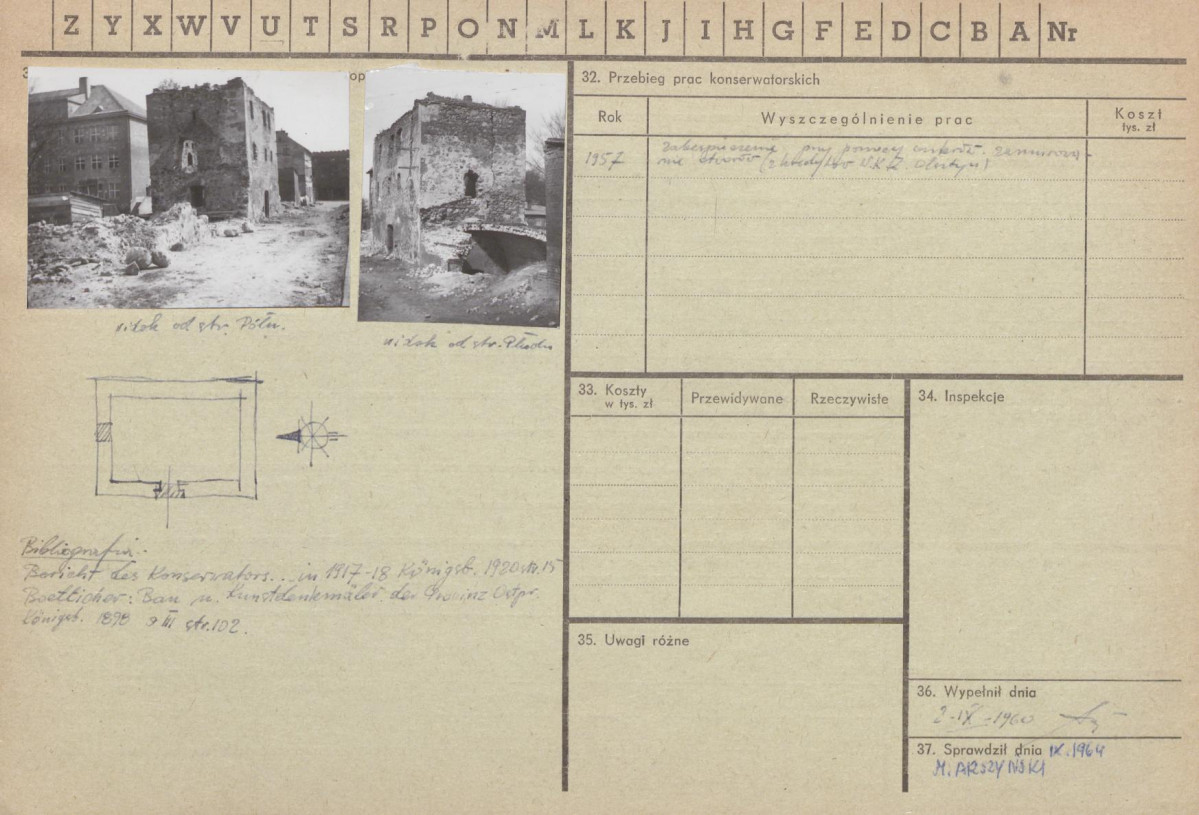 Z Y X W V U T S R P O N M L K J I H G F E D C B A Nr
3
op
widok od str. Półn.
widok od str. Płudn
Bibliografia.
Bericht des Konservators... in 1917-18 Königsb. 1920 str. 15
Boetticher: Bau u. Kunstdenkmäler der Provinz Ostpr.
Königsb. 1898 III str. 102.
32. Przebieg prac konserwatorskich
Rok
Wyszczególnienie prac
Koszt
tys. zł
1957
zabezpieczenie przy pomocy zamurowa-
nie otworów W.K.Z. Olsztyn)
33. Koszty
w tys. zł
Przewidywane
Rzeczywiste
34. Inspekcje
35. Uwagi różne
36. Wypełnił dnia
2-IX-1960
37. Sprawdził dnia IX.1964
M. ARSZYŃSKI